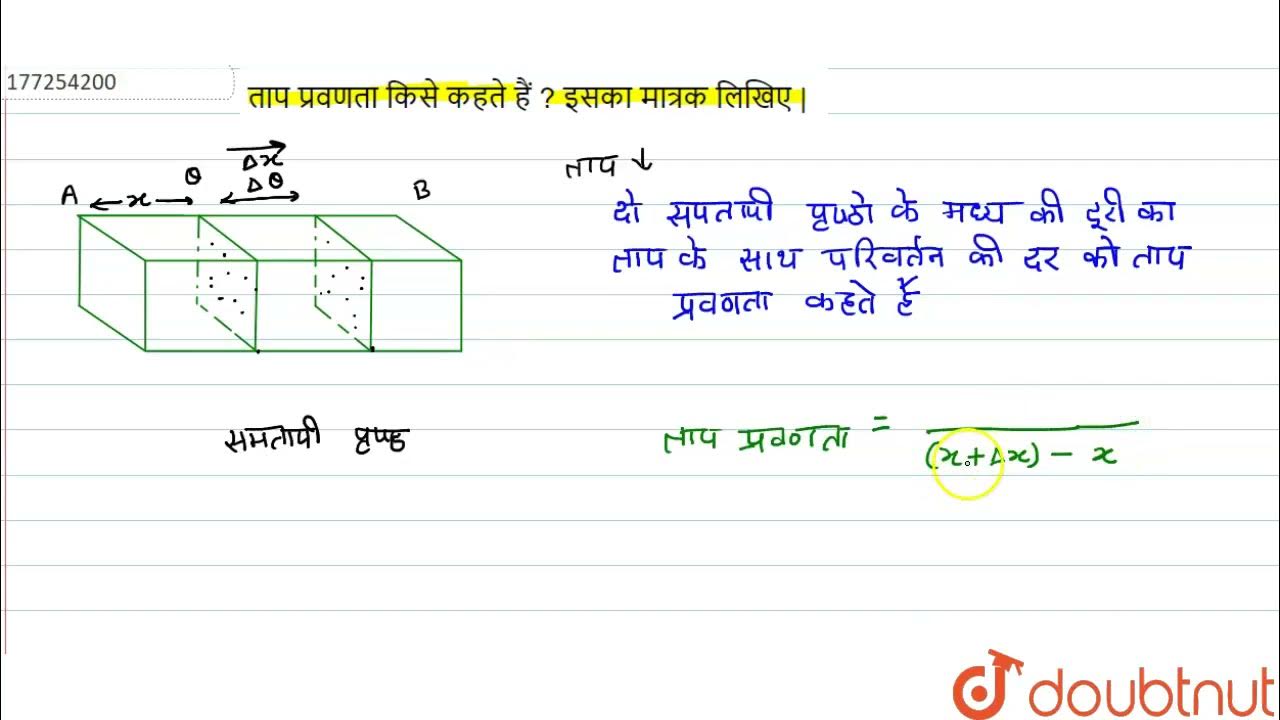 177254200
ताप प्रवणता किसे कहते हैं ? इसका मात्रक लिखिए |
Δx
θ
Δθ
A
x
B
ताप ↓
दो समतापी पृष्ठो के मध्य की दूरी का
ताप के साथ परिवर्तन की दर को ताप
प्रवणता कहते हैं
समतापी पृष्ठ
ताप प्रवणता =
(x+Δx) - x
doubtnut